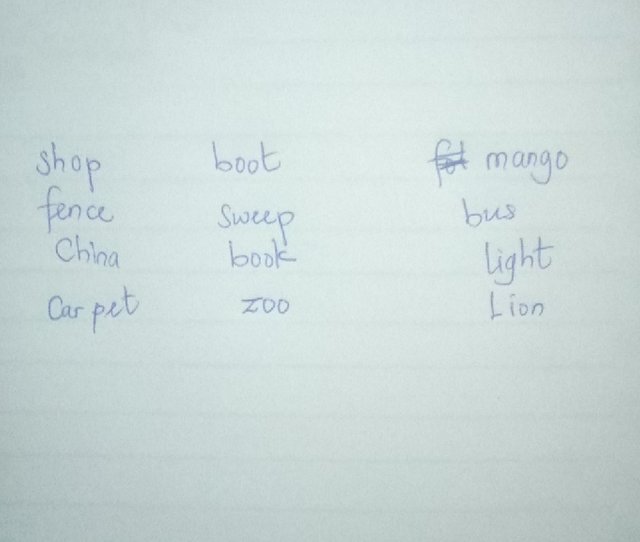 shop boot mango
fence sweep bus
China book light
Carpet zoo Lion